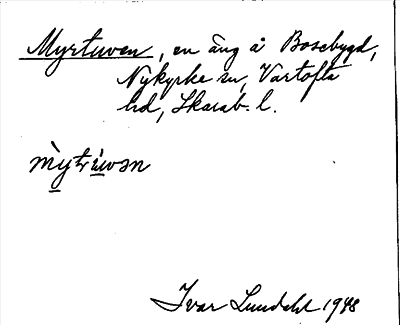 Myrtuven, en äng å Bosebygd,
Nykyrke sn, Vartofta
hd, Skarab. l.
Ivar Lundahl 1948